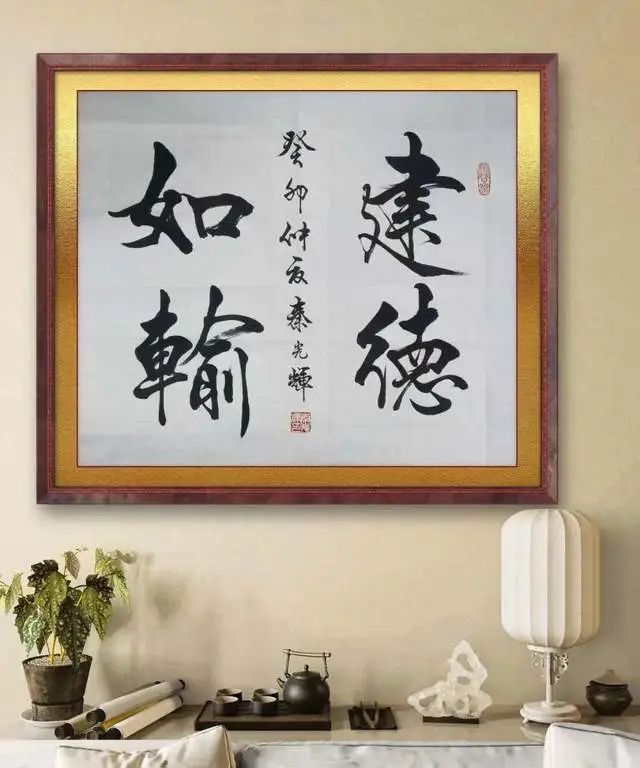 建德
如輸
癸卯仲夏秦光輝